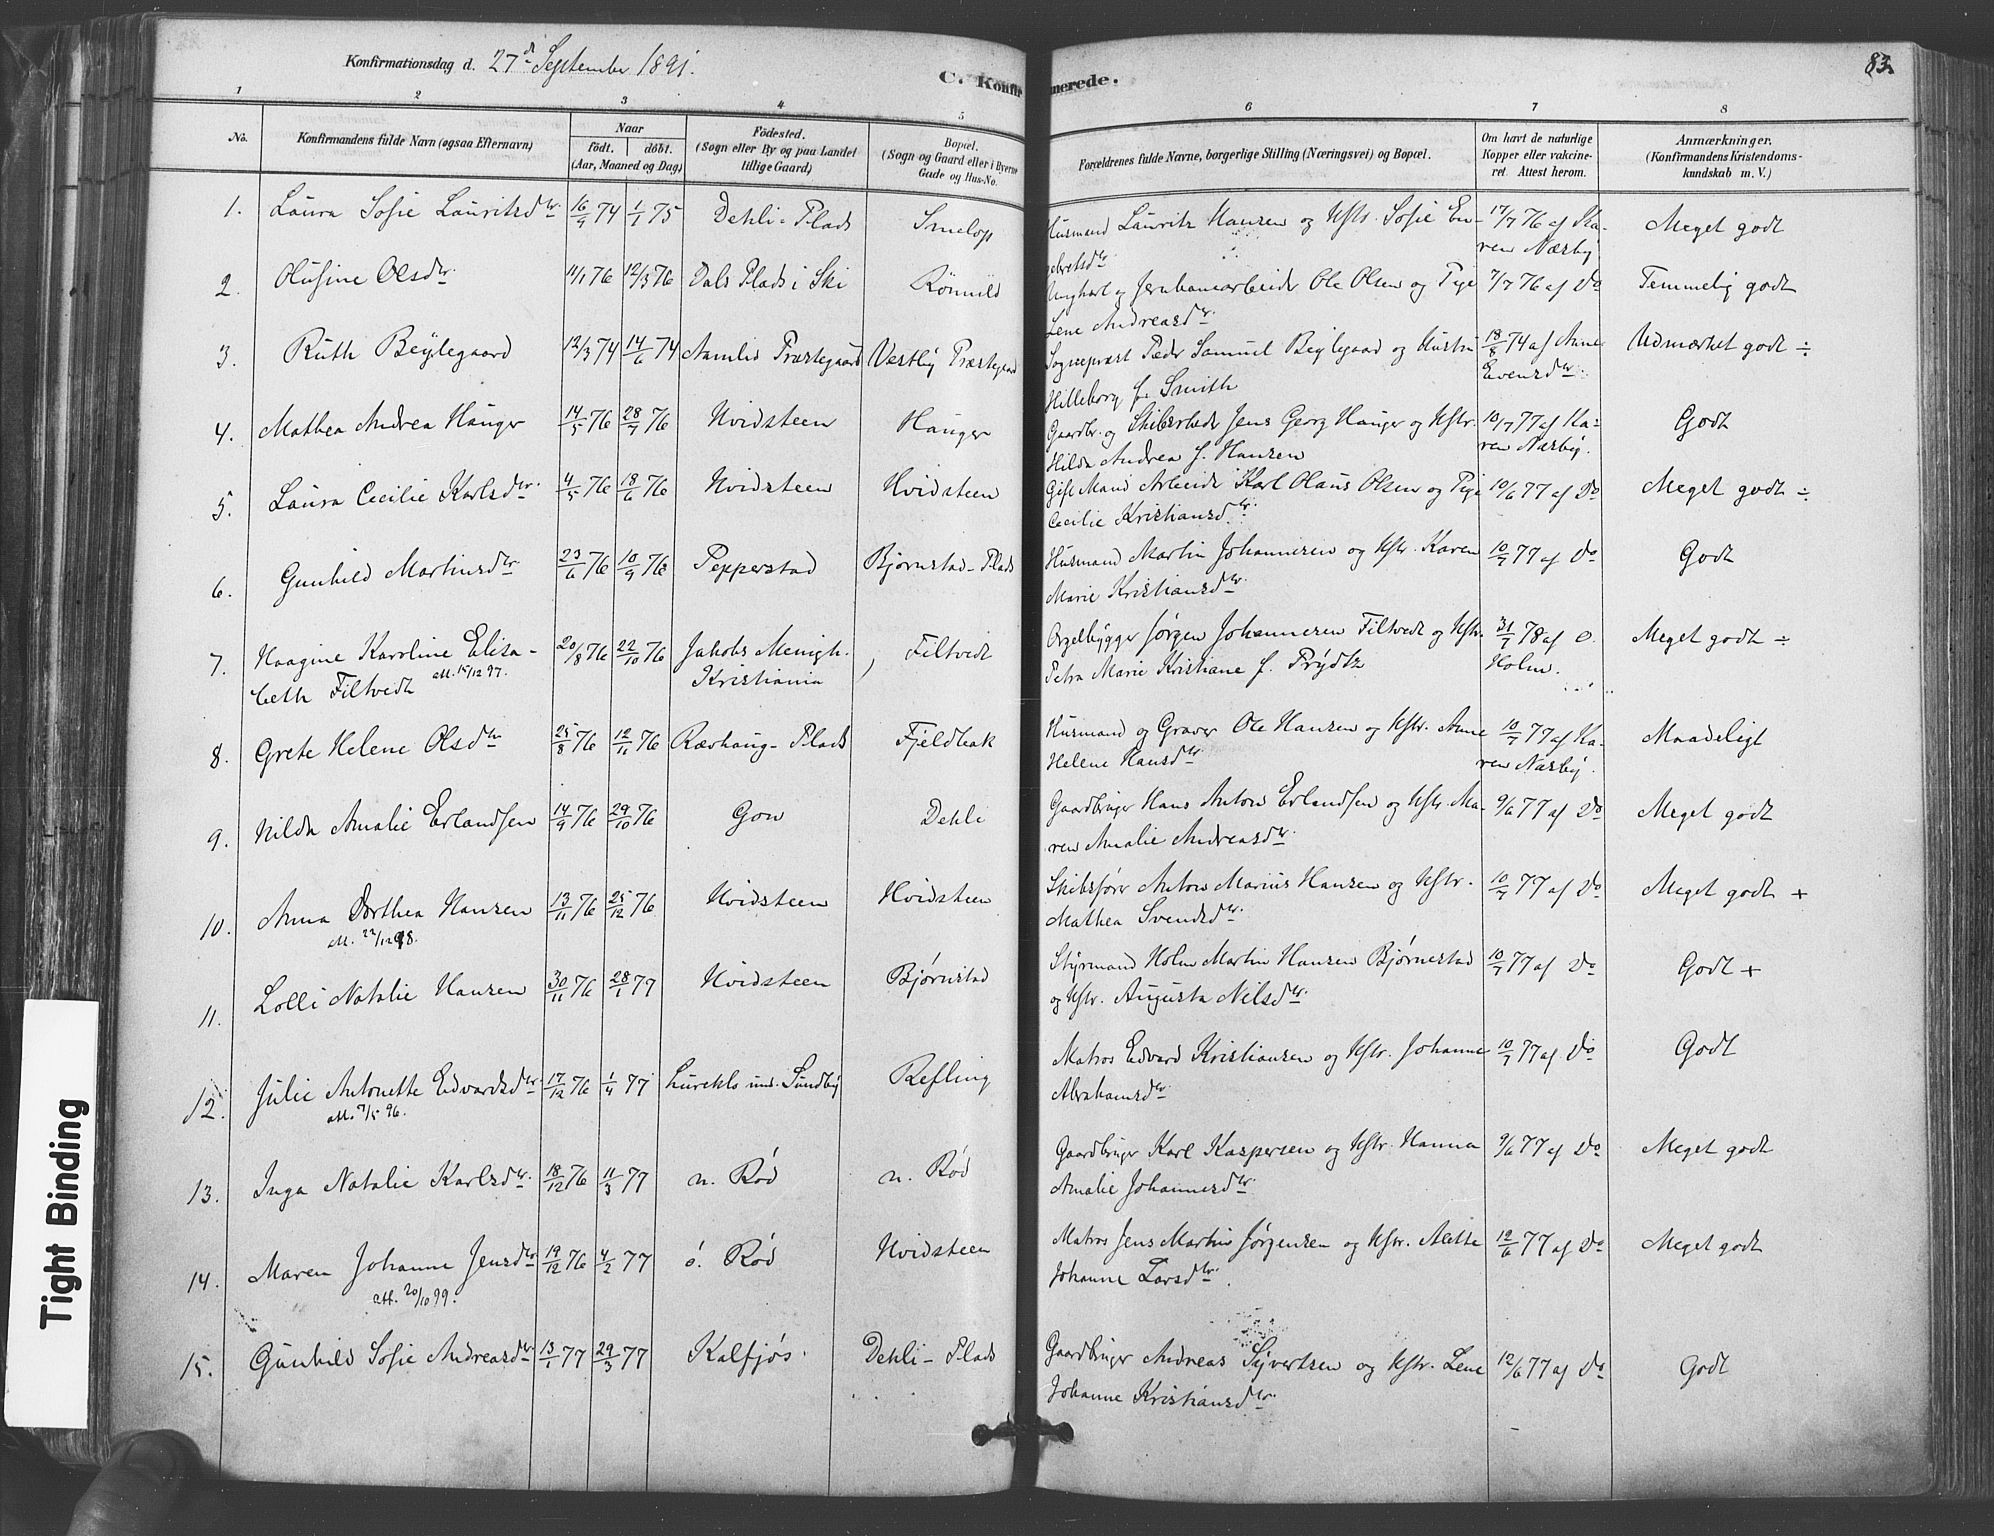 Konfirmationsdag d. 27d September 1891.
C. Konfirmerede.
83.
1 2 3 4 5 6 7 8
No. | Konfirmandens fulde Navn (ogsaa Efternavn) | Naar födt. döbt. (Aar, Maaned og Dag) | Födested. (Sogn eller By og paa Landet tillige Gaard) | Bopæl. (Sogn og Gaard eller i Byerne Gade og Hus-No. | Forældrenes fulde Navne, borgerlige Stilling (Næringsvei) og Bopæl. | Om havt de naturlige Kopper eller vakcineret. Attest herom. | Anmærkninger. (Konfirmandens Kristendomskundskab m. V.)
1. Laura Sofie Lauritsdtr. 16/9 74 1/1 75 Dehli-Plads Smelop Husmand Lauritz Hansen og Hstr. Sofie En- 17/7 76 af Ka- Meget godt
gebretsdtr. ren Næsby
2. Olufine Olsdtr. 11/1 76 12/3 76 Dals Plads i Ski Rönnild Ungkarl og Jernbanearbeider Ole Olsen og Pige 7/7 76 af Do Temmelig godt
Lene Andreasdtr.
3. Ruth Beylegaard 12/3 74 14/6 74 Aamlid Præstegaard Vestby Præstegaard Sognepræst Peder Samuel Beylegaard og Hustru 18/8 74 af Anne Udmærket godt ÷
Hilleborg f. Smith Evensdtr.
4. Mathea Andrea Hauger 14/5 76 28/7 76 Hvidsteen Hauger Gaardbr. og Skibsreder Jens Georg Hauger og Hstr. 10/7 77 af Ka- Godt
Hilda Andrea f. Hansen ren Næsby.
5. Laura Cecilie Karlsdtr. 4/5 76 18/6 76 Hvidsteen Hvidsteen Gift Mand Arbeider Karl Olaus Olsen og Pige 10/6 77 af Do Meget godt ÷
Cecilie Kristiansdtr.
6. Gunhild Martinsdtr. 23/6 76 10/9 76 Pepperstad Bjørnstad-Plads Husmand Martin Johannesen og Hstr. Karen 10/7 77 af Do Godt
Marie Kristiansdtr.
7. Haagine Karoline Elisa- 20/8 76 22/10 76 Jakobs Menigh. Filtvedt Orgelbygger Jørgen Johannesen Filtvedt og Hstr. 31/7 78 af O. Meget godt ÷
beth Filtvedt att. 15/12 97. Kristiania Petra Marie Kristiane f. Prÿdtz Holm.
8. Grete Helene Olsdtr 25/8 76 12/11 76 Ravhaug-Plads Fjeldbak Husmand og Graver Ole Hansen og Hstr. Anne 10/7 77 af Ka- Maadeligt
Helene Hansdtr ren Næsby.
9. Hilda Amalie Erlandsen 14/9 76 29/10 76 Gon Dehli Gaardbruger Hans Anton Erlandsen og Hstr. Ma- 9/6 77 af Do Meget godt
ren Amalie Andreasdtr.
10. Anna Dorthea Hansen 13/11 76 25/12 76 Hvidsteen Hvidsteen Skibsfører Anton Marius Hansen og Hstr. 10/7 77 af Do Meget godt +
att. 22/12 98. Mathea Svendsdtr.
11. Lolli Natalie Hansen 30/11 76 28/1 77 Hvidsteen Bjørnstad Styrmand Holm Martin Hansen Bjørnestad 10/7 77 af Do Godt +
og Hstr. Augusta Nilsdtr.
12. Julie Antonette Edvardsdtr. 17/12 76 1/4 77 Sundby Refling Matros Edvard Kristiansen og Hstr. Johanne 10/7 77 af Do Godt
att. 7/5 96. Abrahamsdtr.
13. Inga Natalie Karlsdtr. 18/12 76 11/3 77 n. Rød n. Rød Gaardbruger Karl Kaspersen og Hstr. Hanna 9/6 77 af Do Meget godt
Amalie Johannesdtr.
14. Maren Johanne Jensdtr 19/12 76 4/2 77 ö. Rød Hvidsteen Matros Jens Martin Jørgensen og Hstr. Alette 12/6 77 af Do Meget godt
att. 20/10 99. Johanne Larsdtr.
15. Gunhild Sofie Andreasdtr 13/1 77 29/3 77 Kalfjøs. Dehli-Plads Gaardbruger Andreas Syvertsen og Hstr. Lene 12/6 77 af Do Godt
Johanne Kristiansdtr.
Tight Binding